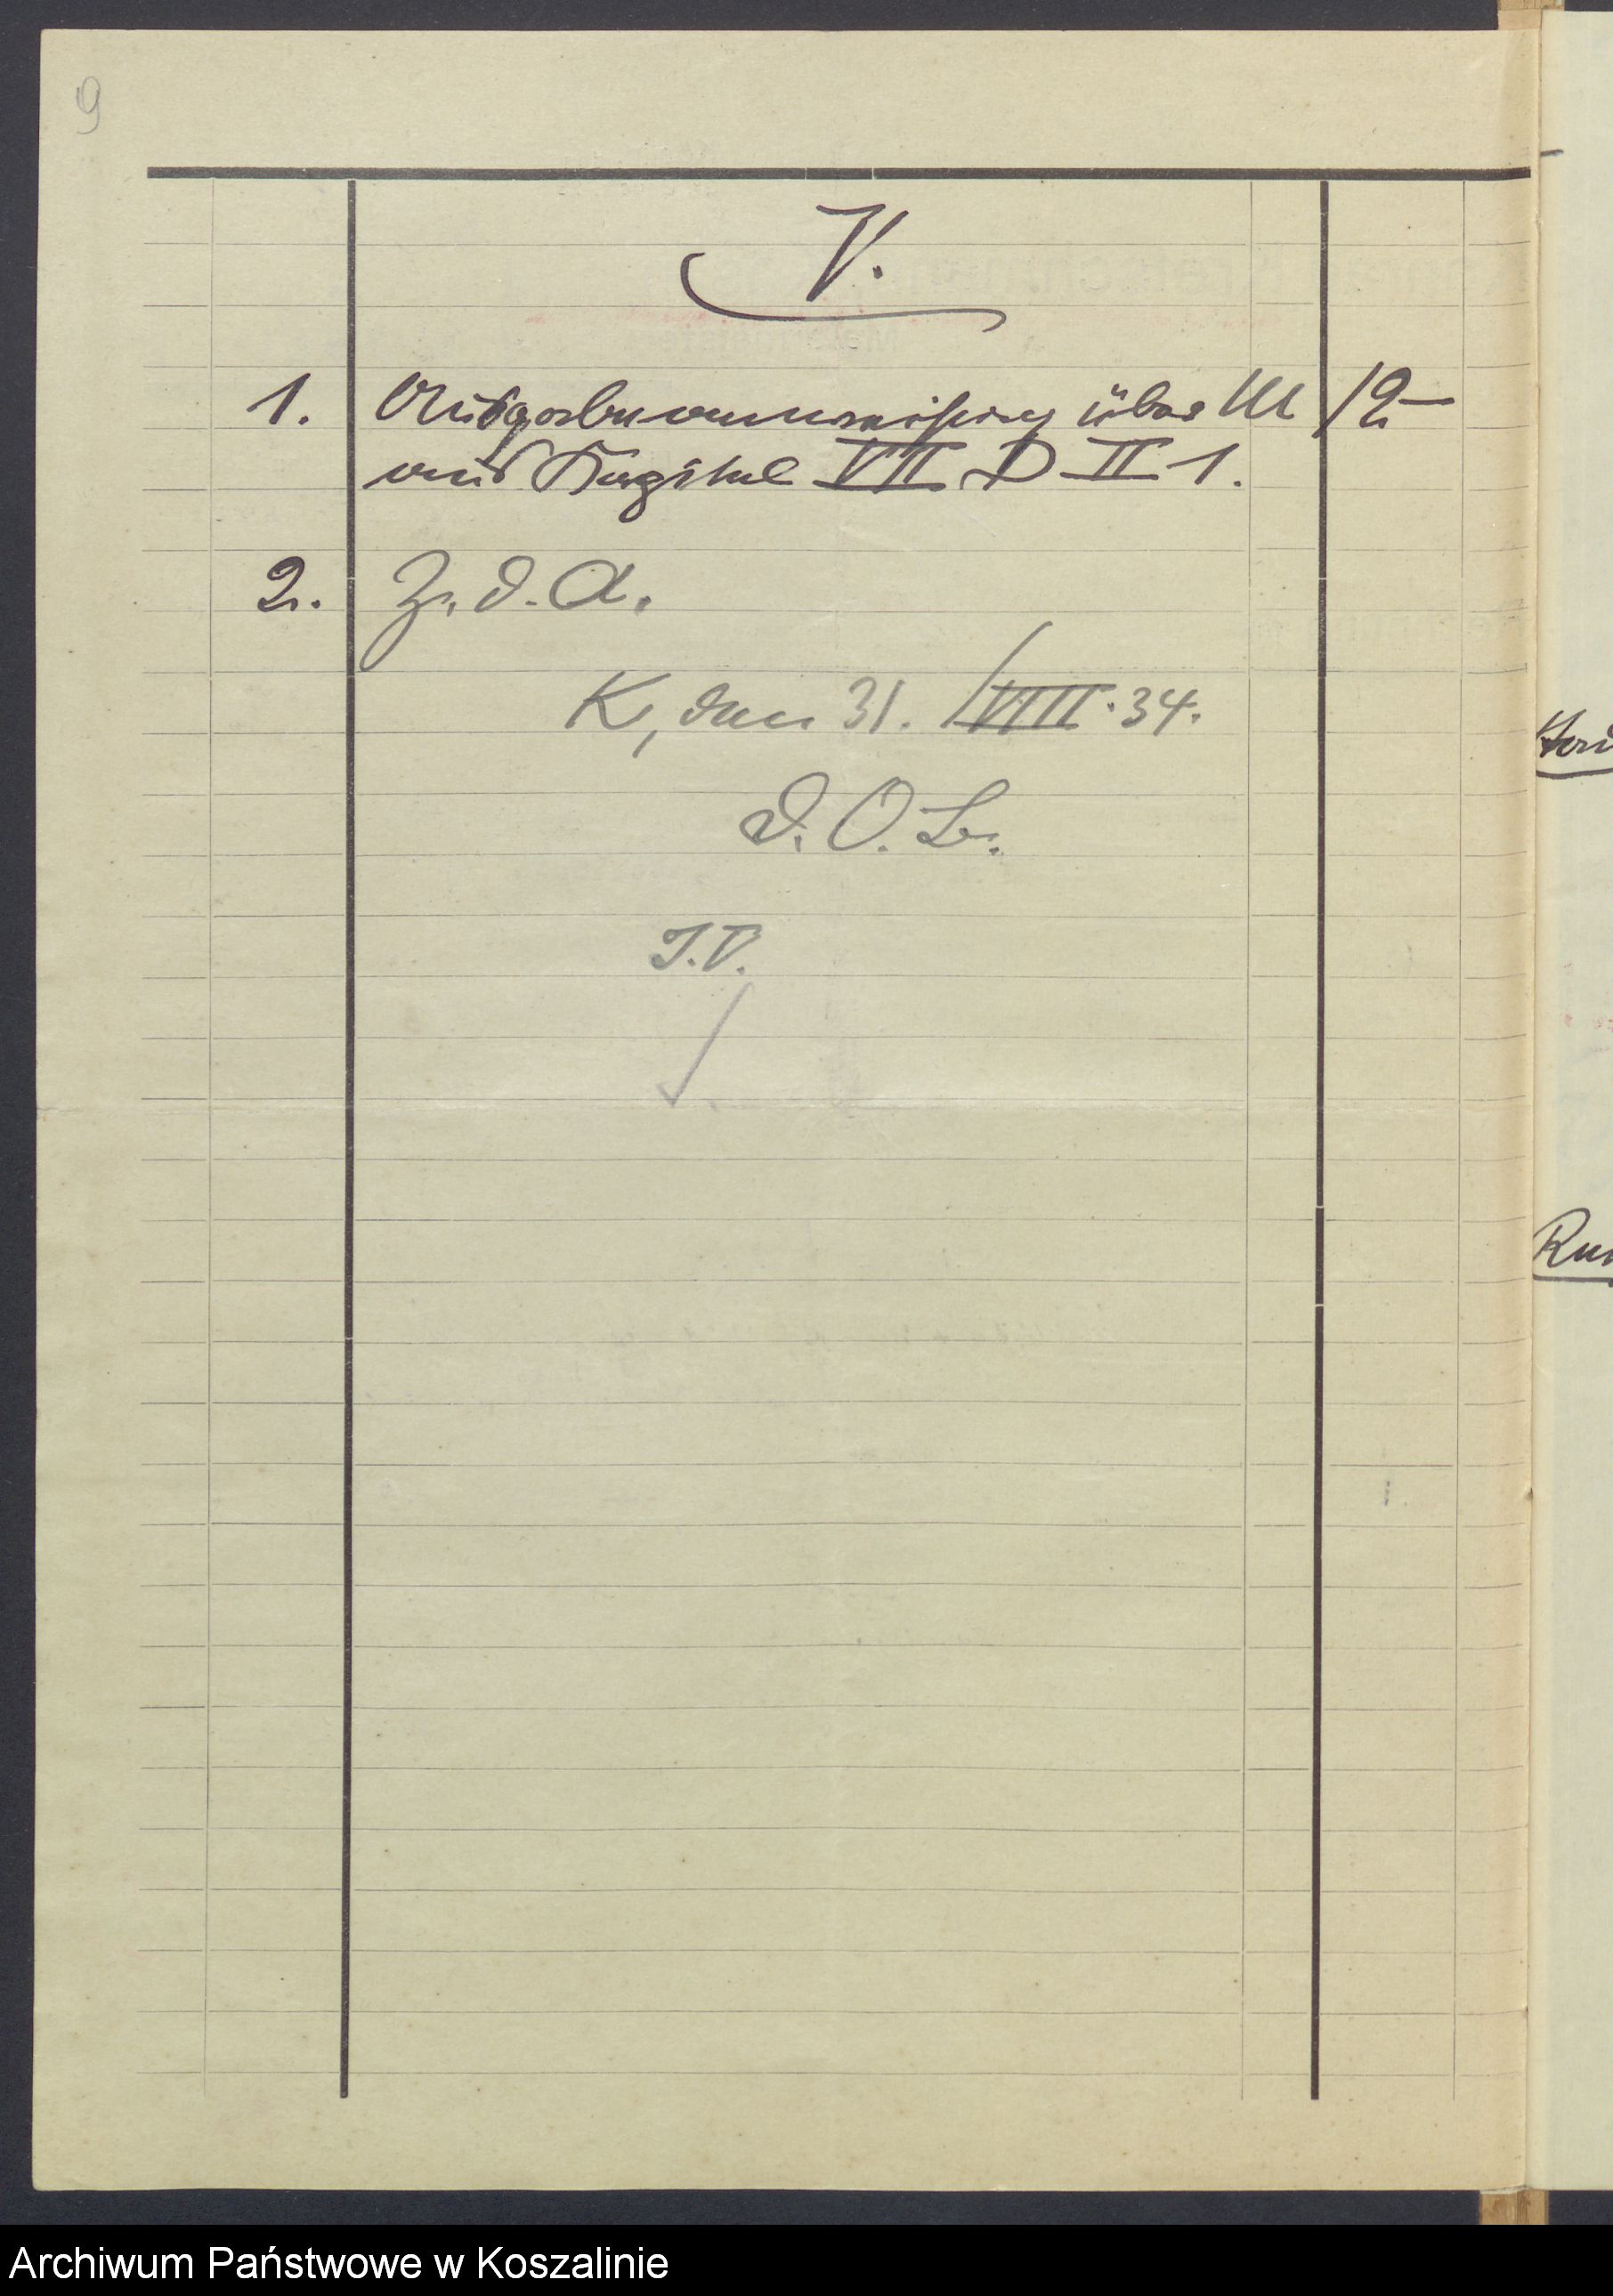 9
V.
1. Ausgabeanweisung über M 12,-
aus Kapitel VII D II 1.
2. Z. d. A.
K, den 31. VIII. 34.
D. O. B.
I.V.
Archiwum Państwowe w Koszalinie